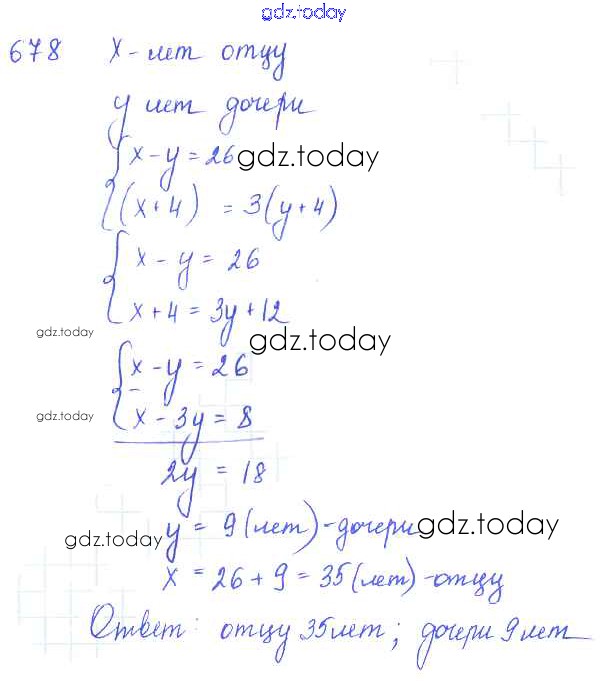 gdz.today
678 x - лет отцу
y лет дочери
{ x - y = 26 gdz.today
(x+4) = 3(y+4)
{ x - y = 26
x + 4 = 3y + 12
gdz.today gdz.today
{ x - y = 26
-
gdz.today x - 3y = 8
2y = 18
gdz.today y = 9 (лет) - дочери gdz.today
x = 26 + 9 = 35 (лет) - отцу
Ответ: отцу 35 лет; дочери 9 лет